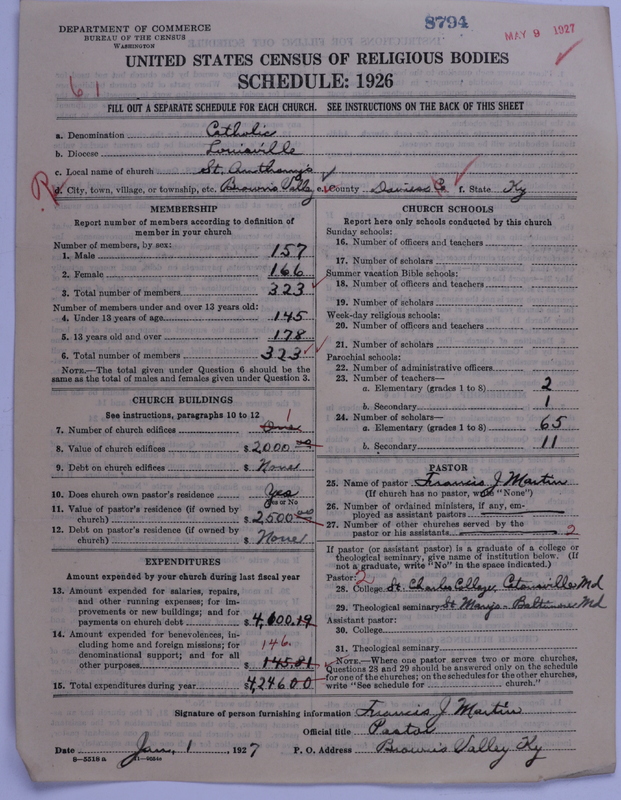 8794
MAY 9 1927
DEPARTMENT OF COMMERCE
BUREAU OF THE CENSUS
WASHINGTON
UNITED STATES CENSUS OF RELIGIOUS BODIES
SCHEDULE: 1926
61
FILL OUT A SEPARATE SCHEDULE FOR EACH CHURCH. SEE INSTRUCTIONS ON THE BACK OF THIS SHEET
a. Denomination Catholic
b. Diocese Louisville
c. Local name of church St. Anthony's
R
d. City, town, village, or township, etc. Browns Valley e. County Daviess Co f. State Ky
MEMBERSHIP
Report number of members according to definition of
member in your church
Number of members, by sex:
1. Male 157
2. Female 166
3. Total number of members 323
Number of members under and over 13 years old:
4. Under 13 years of age 145
5. 13 years old and over 178
6. Total number of members 323
NOTE.—The total given under Question 6 should be
same as the total of males and females given under Question 3.
CHURCH BUILDINGS
See instructions, paragraphs 10 to 12
7. Number of church edifices One 1
8. Value of church edifices $2000 00
9. Debt on church edifices $ None
10. Does church own pastor's residence Yes
Yes or No
11. Value of pastor's residence (if owned by
church) $2,500 00
12. Debt on pastor's residence (if owned by
church) $ None
EXPENDITURES
Amount expended by your church during last fiscal year
13. Amount expended for salaries, repairs,
and other running expenses; for im-
provements or new buildings; and for
payments on church debt $4,100.19
14. Amount expended for benevolences, in-
cluding home and foreign missions; for
denominational support; and for all
146.
other purposes $145.81
15. Total expenditures during year $4,246 00
CHURCH SCHOOLS
Report here only schools conducted by this church
Sunday schools:
16. Number of officers and teachers
17. Number of scholars
Summer vacation Bible schools:
18. Number of officers and teachers
19. Number of scholars
Week-day religious schools:
20. Number of officers and teachers
21. Number of scholars
Parochial schools:
22. Number of administrative officers
23. Number of teachers—
a. Elementary (grades 1 to 8) 2
b. Secondary 1
24. Number of scholars—
a. Elementary (grades 1 to 8) 65
b. Secondary 11
PASTOR
25. Name of pastor Francis J Martin
(If church has no pastor, write "None")
26. Number of ordained ministers, if any, em-
ployed as assistant pastors
27. Number of other churches served by the
pastor or his assistants 2
If pastor (or assistant pastor) is a graduate of a college or
theological seminary, give name of institution below. (If
not a graduate, write "No" in the space indicated.)
Pastor: 2
28. College St. Charles College, Catonsville Md
29. Theological seminary St Marys - Baltimore Md
Assistant pastor:
30. College
31. Theological seminary
NOTE.—Where one pastor serves two or more churches,
Questions 28 and 29 should be answered only on the schedule
for one of the churches; on the schedules for the other churches,
write "See schedule for church."
Signature of person furnishing information Francis J Martin
Official title Pastor
Date Jan, 1, 1927 P. O. Address Browns Valley Ky
8—5518 a